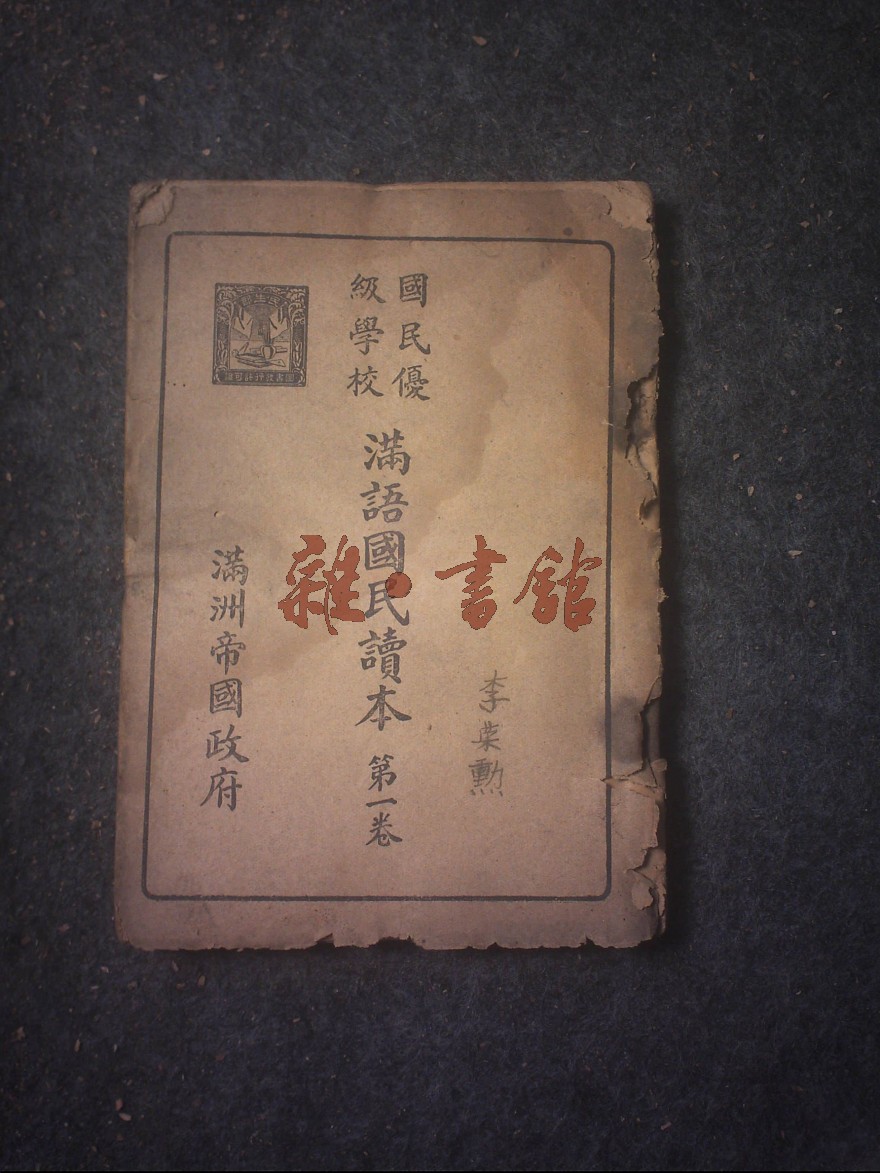 國民優
級學校
滿語國民讀本 第一卷
李荣勲
滿洲帝國政府
民生部
雜·書館